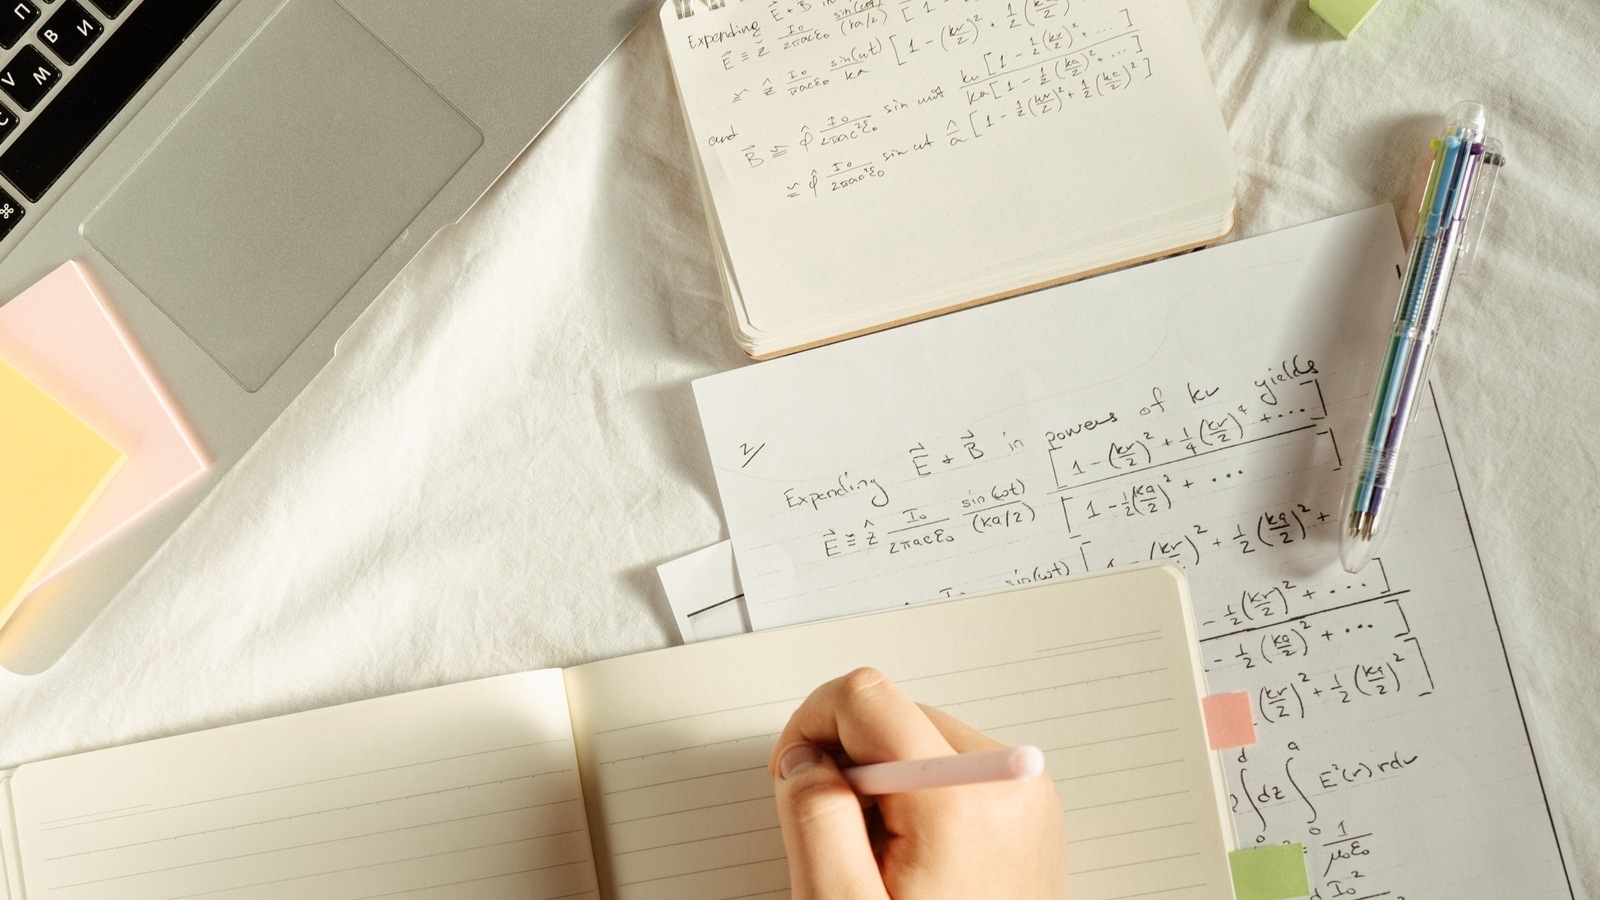 П
В И
V М
C
⌘
Expending E⃗ + B⃗ in
E⃗ ≅ ẑ I₀/2πacε₀ sin(ωt)/(ka/2) [1 -
≅ ẑ I₀/πacε₀ sin(ωt)/ka [1 - (kr/2)² + 1/2(ka/2)²
and B⃗ ≅ φ̂ I₀/2πac²ε₀ sin ωt kr[1 - 1/2(kr/2)² + ...]/ka[1 - 1/2(ka/2)² + ...]
≅ φ̂ I₀/2πac²ε₀ sin ωt r/a [1 - 1/2(kr/2)² + 1/2(ka/2)²]
2/
Expending E⃗ + B⃗ in powers of kr yields
E⃗ ≅ ẑ I₀/2πacε₀ sin(ωt)/(ka/2) [1 - (kr/2)² + 1/4(kr/2)⁴ + ....]/[1 - 1/2(ka/2)² + ...]
I₀ sin(ωt) [1 - (kr/2)² + 1/2(ka/2)² +
- 1/2(kr/2)² + ...]
- 1/2(ka/2)² + ...]
(kr/2)² + 1/2(ka/2)²]
∫₀ᵈ dz ∫₀ᵃ E²(r) rdr
= 1/μ₀ε₀
d I₀²